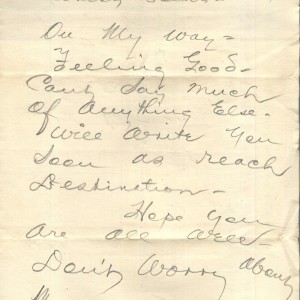 On My way-
Feeling Good-
Can't Say Much
of Anything Else-
Will Write You
Soon as reach
Destination-
Hope You
Are all well-
Don't Worry About